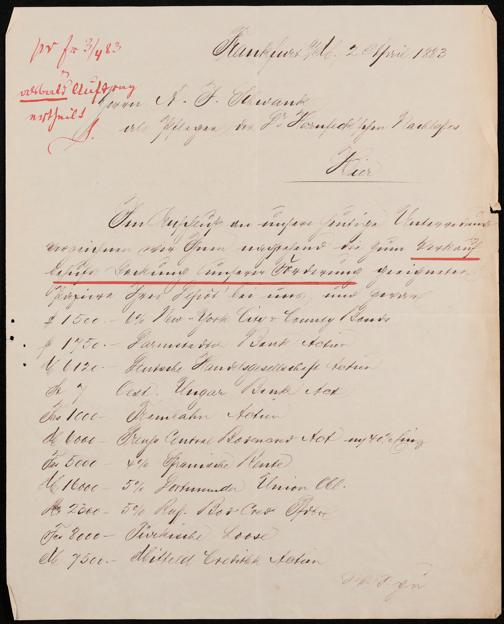 per fr 3/4 83
Auftrag
ertheilt
Frankfurt a/M. 2 April 1883
Herrn A. F. Schwank
als Pfleger des Dr Hornfeck'schen Nachlasses
Hier
Im Anschluß an unsere heutige Unterredung
verzeichnen wir Ihnen nachstehend die zum Verkauf
behufs Deckung unserer Forderung geeigneten
bei uns, und zwar
$ 1500.- 6% New-York City & County Bonds
f 1750.- Darmstädter Bank Actien
M 6120.- Deutsche Handelsgesellschaft Actien
St 7 Oest. Ungar Bank Act
Frs 1000.- Actien
M 6000.- Preuss Central Act m/40% Einz
Frs 5000.- 4% Spanische Rente
M 16000.- 5% Dortmunder Union Obl.
2300.- 5% Russ. Bod Cred Pfdbr
Frs 8000.- Türkische Loose
M 7500.- Mitteld Creditbk Actien